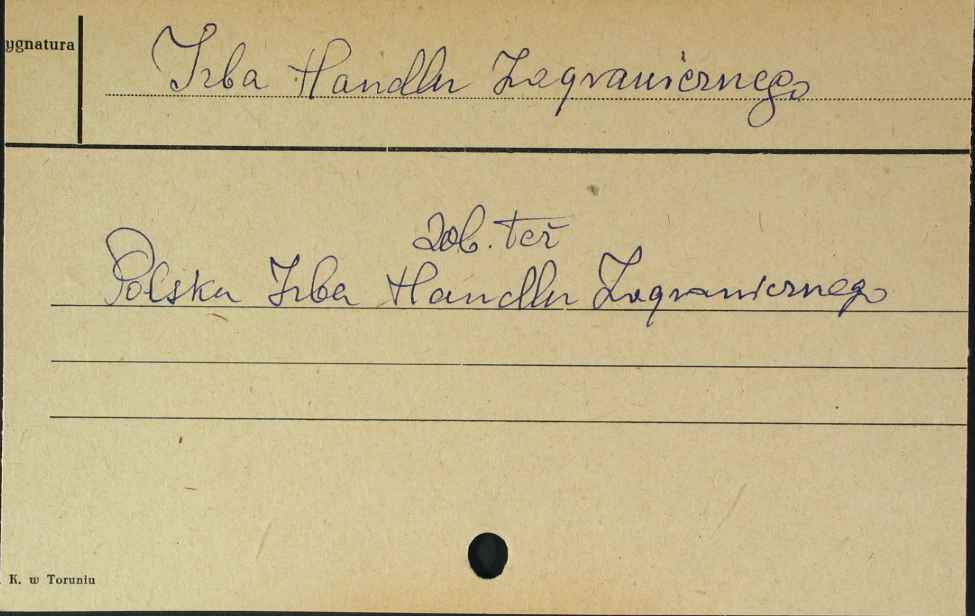 ygnatura
Izba Handlu Zagranicznego
zob. też
Polska Izba Handlu Zagranicznego
K. w Toruniu